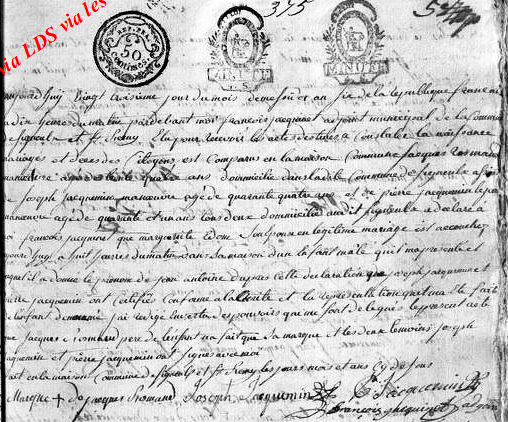 via LDS via les
375
REP. FRA.
50
CENTIMES
MINUTE
aujourdhuy vingt troisieme jour du mois de messidor an six de la republique francaise
a dix heures du matin pardevant moi francois jacqminet adjoint municipal de la commune
et St Remy Elu pour recevoir les actes destinés a constater la naissance
mariages et deces des citoyens est comparu en la maison commune jacques romand
manœuvre agé de quarante ans domicilié dans la dite commune de assisté
de joseph jacquemin manœuvre agé de quarante quatre ans et de pierre jacquemin le
manœuvre agé de quarante et un ans tous deux domiciliés audit a déclaré a
moi francois jacqminet que marguerite son Epouse en legitime mariage est accouchée
aujourdhuy a huit heures du matin dans sa maison d'un Enfant mâle qu'il m'a presenté et
auquel il a donné le prenom de jean antoine dapres cette declaration que joseph jacquemin et
pierre jacquemin ont certifiés conforme a la verité et la représentation qui m'a été faite
de lenfant denommé j'ai rédigé En vertu des pouvoirs qui me sont delegués le present acte
que jacques romand pere de lenfant na fait que sa marque et les deux temoins joseph
jacquemin et pierre jacquemin ont signés avec moi
fait en la maison commune de et St Remy les jours mois et ans cy dessus
Marque + de jacques Romand Joseph jacquemin P jacquemin
francois jacqminet adjoint